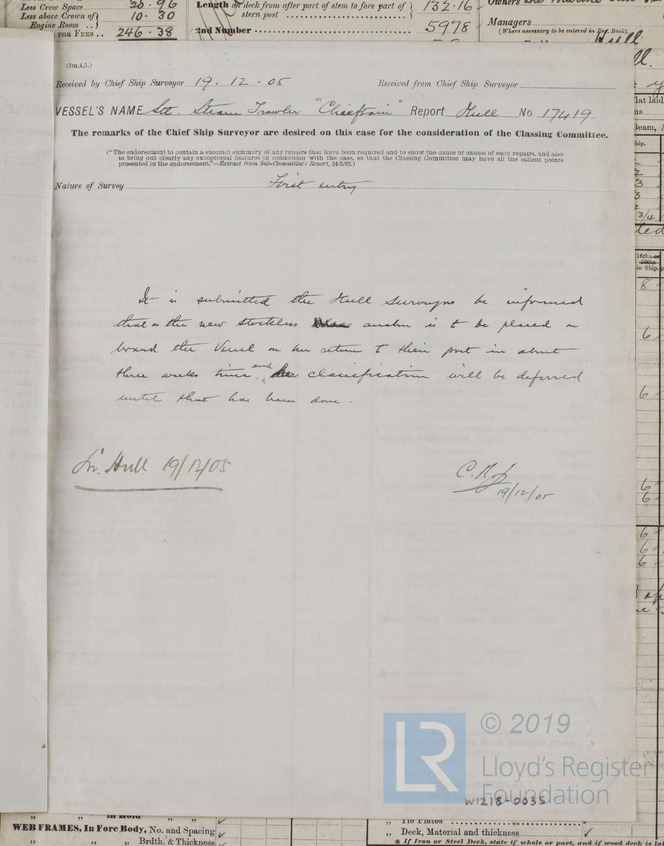 Less Crew Space 28.96
Less above Crown of Engine Room 10.30
FOR FEES 246.38
Length on deck from after part of stem to fore part of stern post 132.16
2nd Number 5978
Managers
(Where necessary to be entered in Reg. Book).
Hull
(3m,4,5.)
Received by Chief Ship Surveyor 19.12.05 Received from Chief Ship Surveyor
VESSEL'S NAME Stl. Steam Trawler "Chieftain" Report Hull No. 17419
The remarks of the Chief Ship Surveyor are desired on this case for the consideration of the Classing Committee.
("The endorsement to contain a succinct summary of any repairs that have been required and to show the cause or causes of such repairs, and also
to bring out clearly any exceptional features in connection with the case, so that the Classing Committee may have all the salient points
presented in the endorsement."—Extract from Sub-Committee's Report, 24/5/92.)
Nature of Survey First entry
It is submitted the Hull Surveyors be informed
that as the new stockless anchor is to be placed on
board the Vessel on her return to their port in about
three weeks time, and her classification will be deferred
until that has been done.
Hull 19/12/05
19/12/05
LR
© 2019
Lloyd's Register
Foundation
W1218-0035
WEB FRAMES, In Fore Body, No. and Spacing
Brdth. & Thickness
Tie Plates
Deck, Material and thickness
If Iron or Steel Deck, state if whole or part, and if wood deck is